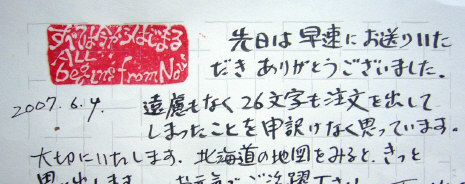 すべては今からはじまる
ALL
begins from Now
先日は早速にお送りいた
だきありがとうございました。
2007.6.4.
遠慮もなく26文字も注文を出して
しまったことを申訳けなく思っています。
大切にいたします。北海道の地図をみると、きっと
思い出します。お元気でご活躍下さい。